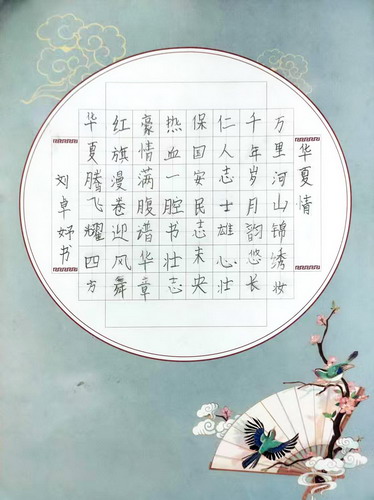 华夏情
万里河山锦绣妆
千年岁月韵悠长
仁人志士雄心壮
保国安民志未央
热血一腔书壮志
豪情满腹谱华章
红旗漫卷迎风舞
华夏腾飞耀四方
刘卓妤书